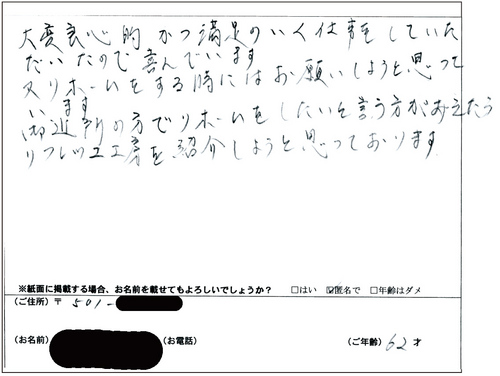 大変良心的かつ満足のいく仕事をしていた
だいたので喜んでいます
又リホームをする時にはお願いしようと思って
います
御近所の方でリホームをしたいと言う方がおえたら
リフレッユ工房を紹介しようと思っております
※紙面に掲載する場合、お名前を載せてもよろしいでしょうか？ □はい ☑匿名で □年齢はダメ
(ご住所) 〒 501-
(お名前) (お電話) (ご年齢) 62 才